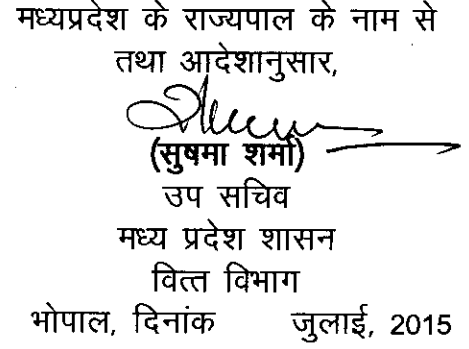 मध्यप्रदेश के राज्यपाल के नाम से
तथा आदेशानुसार,
(सुषमा शर्मा)
उप सचिव
मध्य प्रदेश शासन
वित्त विभाग
भोपाल, दिनांक जुलाई, 2015